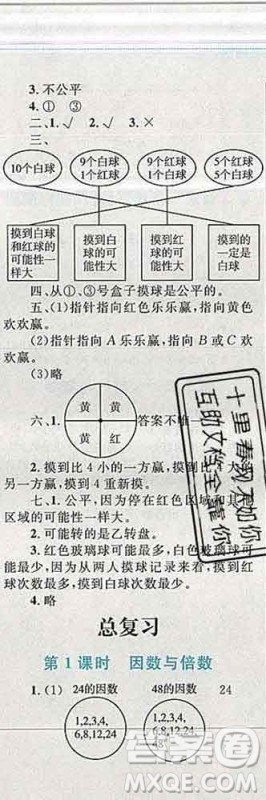 3.不公平
4.① ③
二、1.√ 2.√ 3.×
三、
10个白球 9个白球 1个红球 9个红球 1个白球 5个红球 5个白球
摸到白球和红球的可能性一样大 摸到白球的可能性大 摸到红球的可能性大 摸到的一定是白球
四、从①、③号盒子摸球是公平的。
五、(1)指针指向红色乐乐赢,指向黄色
欢欢赢。
(2)指针指向 A 乐乐赢,指向 B 或 C 欢
欢赢。
(3)略
六、1.
黄 黄
黄 红
答案不唯一
2.摸到比 4 小的一方赢,摸到比
方赢,摸到 4 重新摸。
七、1.公平,因为停在红色区域和
区域的可能性一样大。
2.可能转的是乙转盘。
3.红色玻璃球可能最多,白色玻璃球可
能最少,因为从两人摸球记录来看,摸到红
球次数最多,摸到白球次数最少。
4.略
总复习
第 1 课时 因数与倍数
1.(1) 24的因数 48的因数 24
1,2,3,4, 1,2,3,4,
6,8,12,24 6,8,12,24,
48
十里春风不如你
互助文档全靠你
答案圈
MXQE.COM